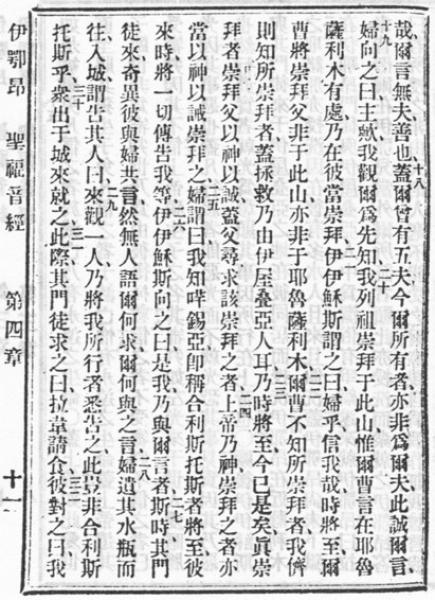 哉爾言無夫善也十八蓋爾曾有五夫今爾所有者亦非爲爾夫此誠爾言
十九婦向之曰主歟我觀爾爲先知二十我列祖崇拜于此山惟爾曹言在耶魯
薩利木有處乃在彼當崇拜二一伊伊穌斯謂之曰婦乎信我哉時將至爾
曹將崇拜父非于此山亦非于耶魯薩利木二二爾曹不知所崇拜者我儕
則知所崇拜者蓋拯救乃由伊屋疊亞人耳二三乃時將至今已是矣眞崇
拜者崇拜父以神以誠蓋父尋求該崇拜之者二四上帝乃神崇拜之者亦
當以神以誠崇拜之二五婦謂曰我知嗶錫亞卽稱合利斯托斯者將至彼
來時將一切傳告我等二六伊伊穌斯向之曰是我乃與爾言者二七斯時其門
徒來奇異彼與婦共言然無人語爾何求爾何與之言二八婦遺其水瓶而
往入城謂告其人曰二九來觀一人乃將我所行者悉告之此豈非合利斯
托斯乎三十衆出于城來就之三一此際其門徒求之曰拉韋請食三二彼對之曰我
伊鄂昂 聖福音經 第四章 十一